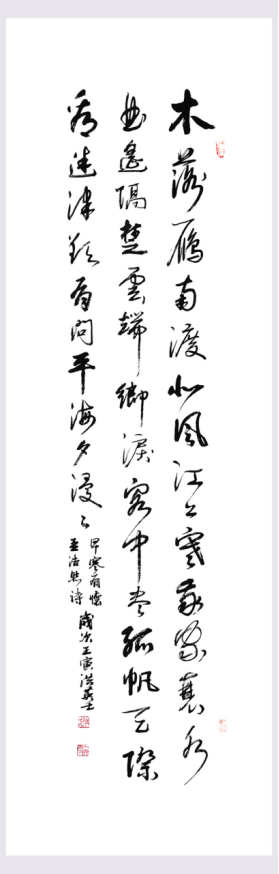 木落鴈南渡北風江上寒我家襄水
曲遙隔楚雲端鄉淚客中尽孤帆天際
看迷津欲有問平海夕漫々
早寒有懷
孟浩然詩
歲次壬寅洪